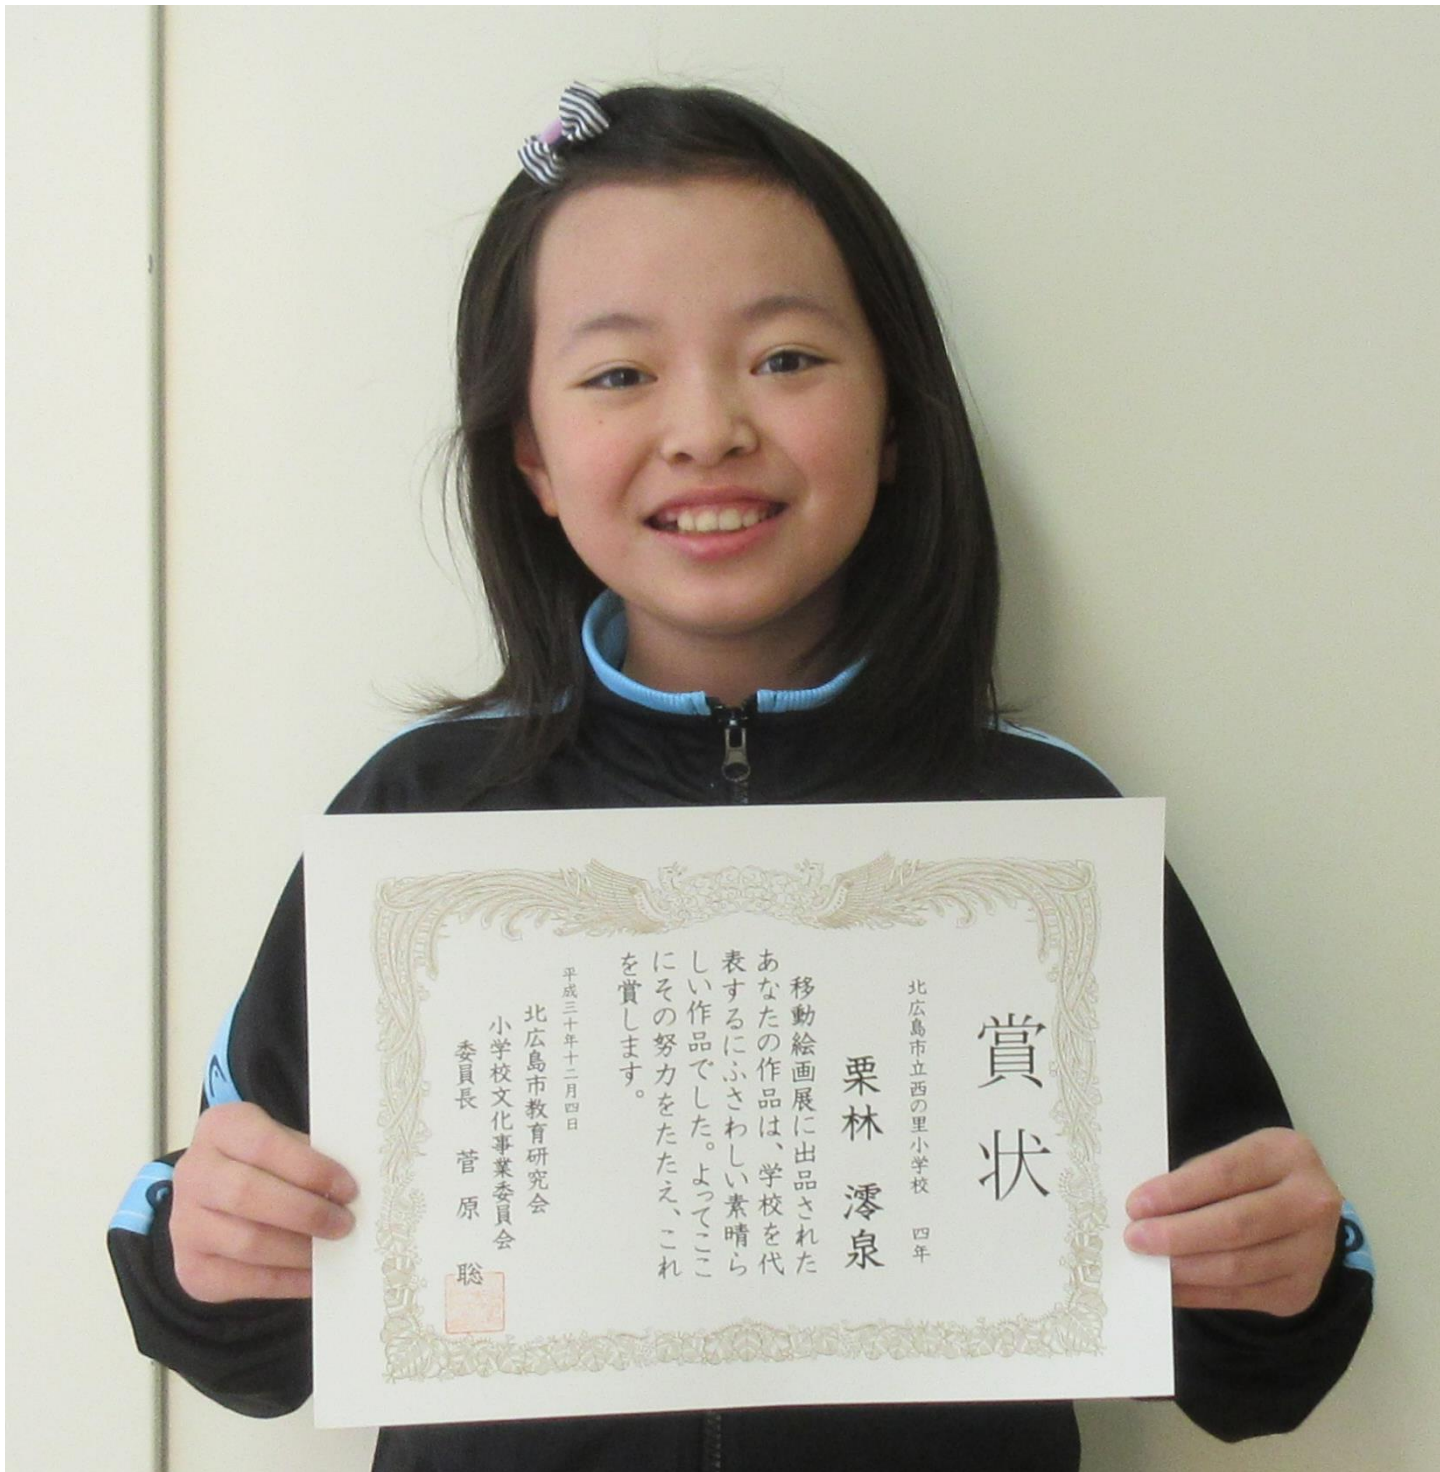 賞状
北広島市立西の里小学校 四年
栗林 澪泉
移動絵画展に出品された
あなたの作品は、学校を代
表するにふさわしい素晴ら
しい作品でした。よってここ
にその努力をたたえ、これ
を賞します。
平成三十年十二月四日
北広島市教育研究会
小学校文化事業委員会
委員長 菅原 聡